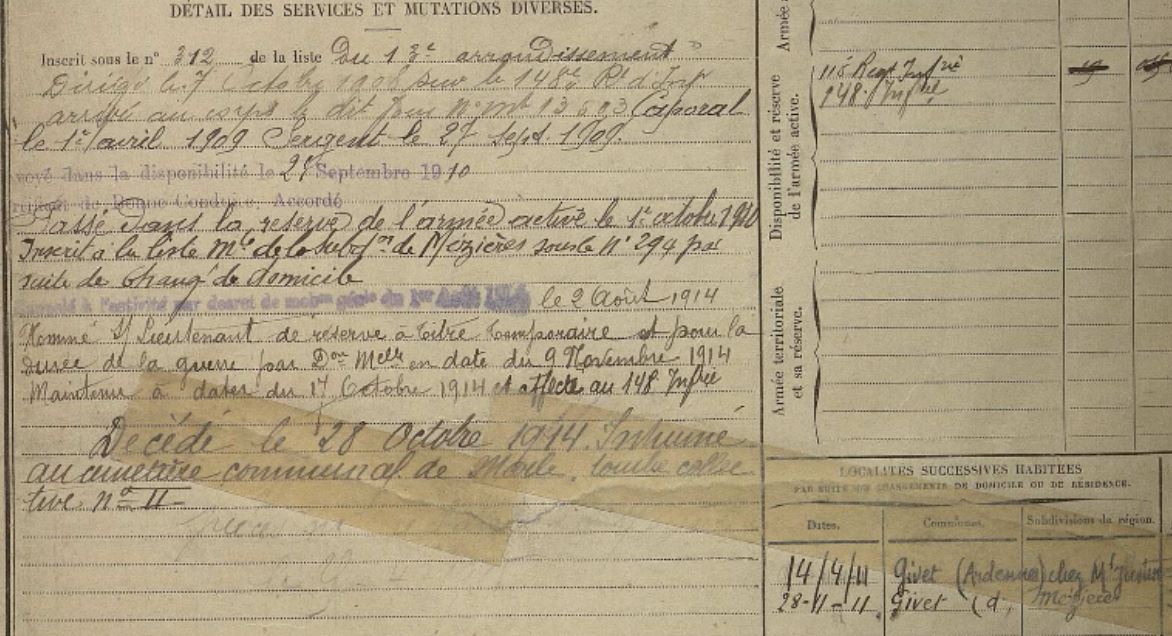 DÉTAIL DES SERVICES ET MUTATIONS DIVERSES.
Inscrit sous le n° 312 de la liste Du 13e arrondissement
Dirigé le 7 Octobre 1908 sur le 148e Rt d'Infie
arrivé au corps le dit jour n° mle Caporal
le 1er avril 1909 Sergent le 27 Sept 1909.
voyé dans la disponibilité le Septembre 1910
de Bonne Conduite, Accordé
Passé dans la réserve de l'armée active le 1er octobre 1910
Inscrit à la liste Mle de la subdon de Mézières sous le N° 294 par
suite de changt de domicile
à l'activité par décret de mobon génle du 1er Août 1914 le 2 Août 1914
Nommé S/ Lieutenant de réserve à titre temporaire et pour la
durée de la guerre par Don Melle en date du 9 Novembre 1914
Maintenu à dater du 17 Octobre 1914 et affecté au 148 Infie
Décédé le 28 Octobre 1914. Inhumé
au cimetière communal de tombe collec-
tive n° 11
Armée
Disponibilité et réserve
de l'armée active.
Armée territoriale
et sa réserve.
Regt Infie
148 Infie
LOCALITÉS SUCCESSIVES HABITÉES
PAR SUITE DES CHANGEMENTS DE DOMICILE OU DE RÉSIDENCE.
Dates. Communes. Subdivisions de région.
14/4/11 Givet (Ardennes) chez Mr
28-11-11. Givet (d° Mézières